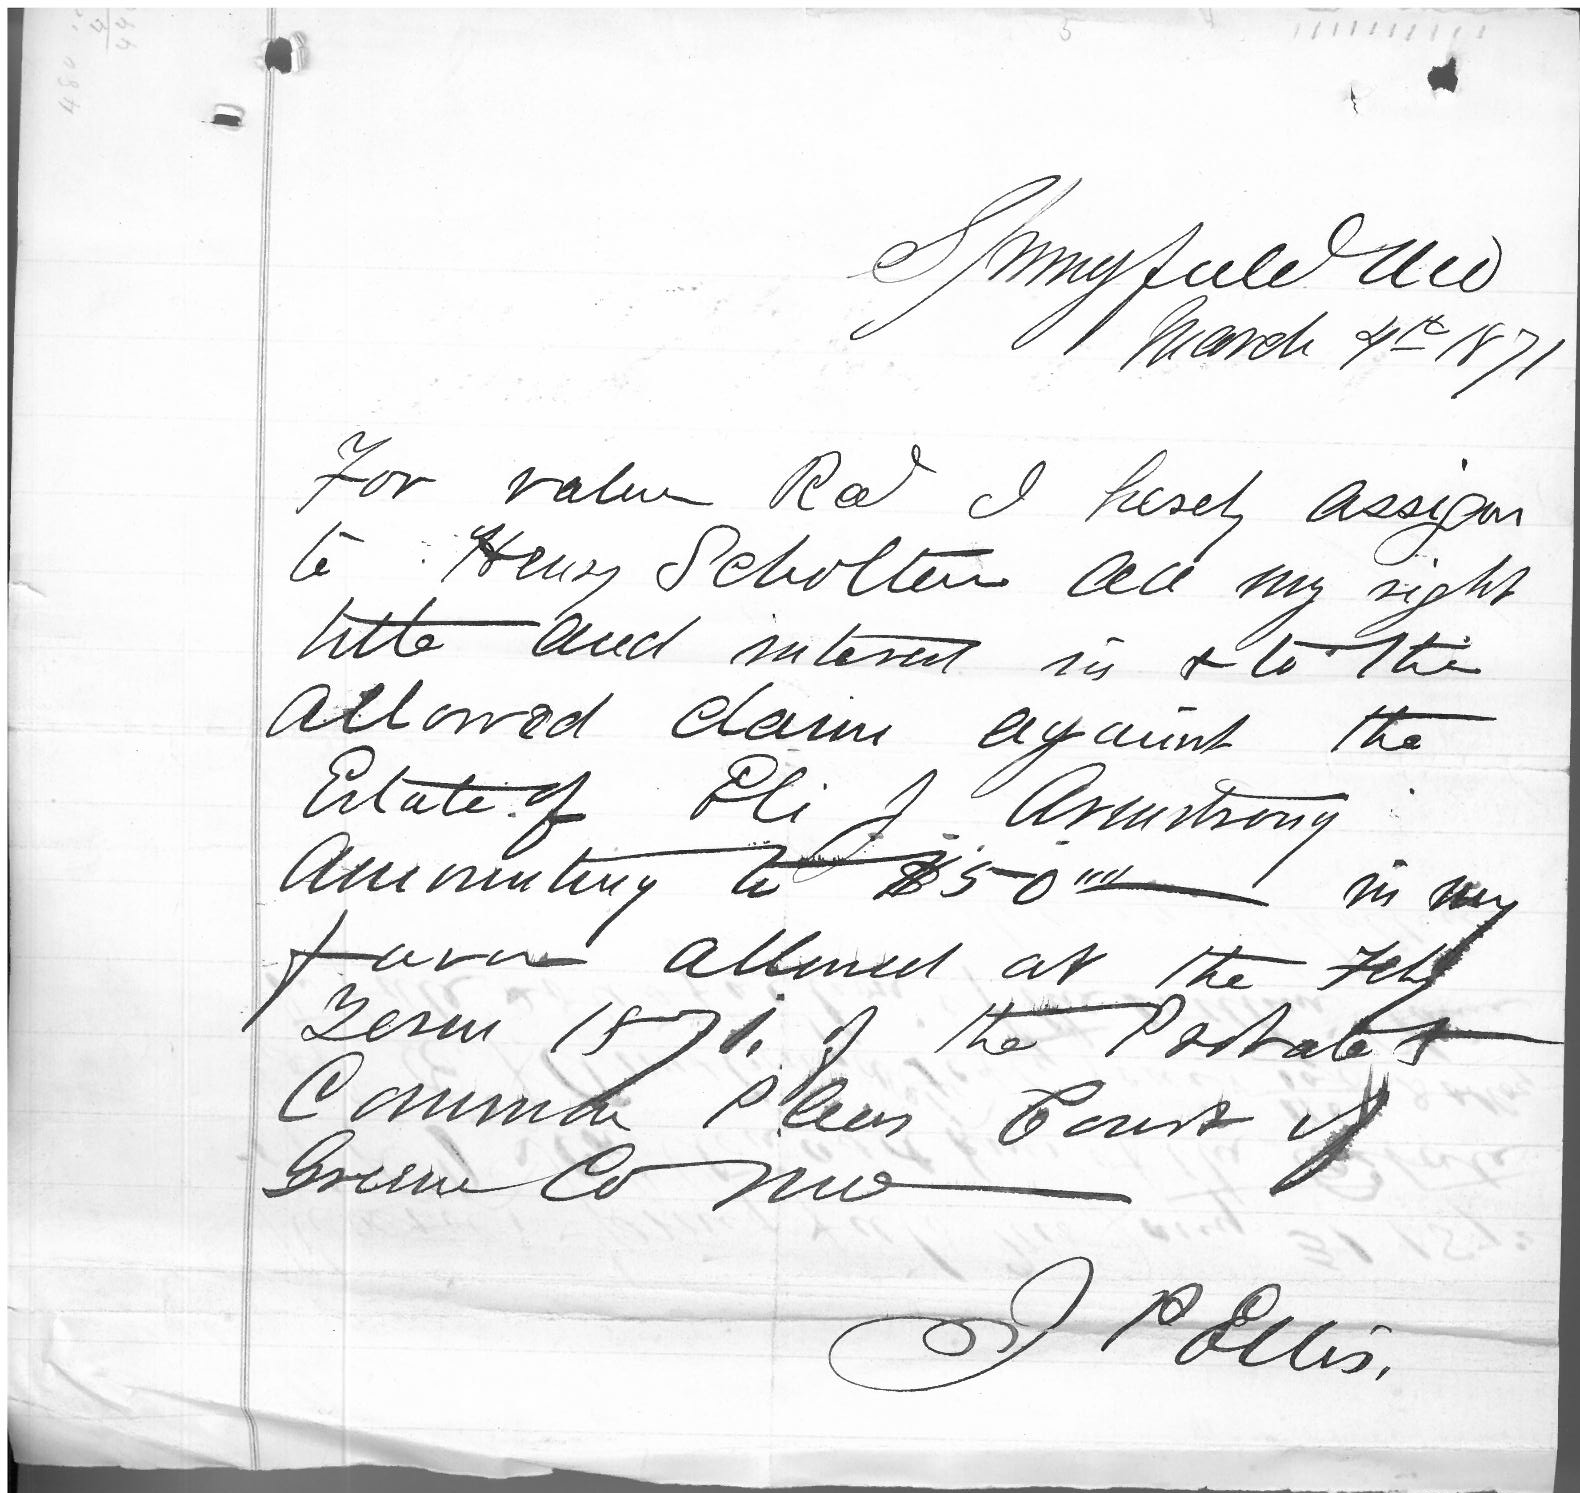 Springfield Mo
March 4th 1871
For value Recd I hereby assign
to Henry Scholten all my right
title and interest in & to the
allowed claim against the
Estate of Eli J Armstrong
amounting to $50"" in my
favor allowed at the Feby
Term 1871. of the Probate &
Common Pleas Court of
Greene Co Mo
J P Ellis.